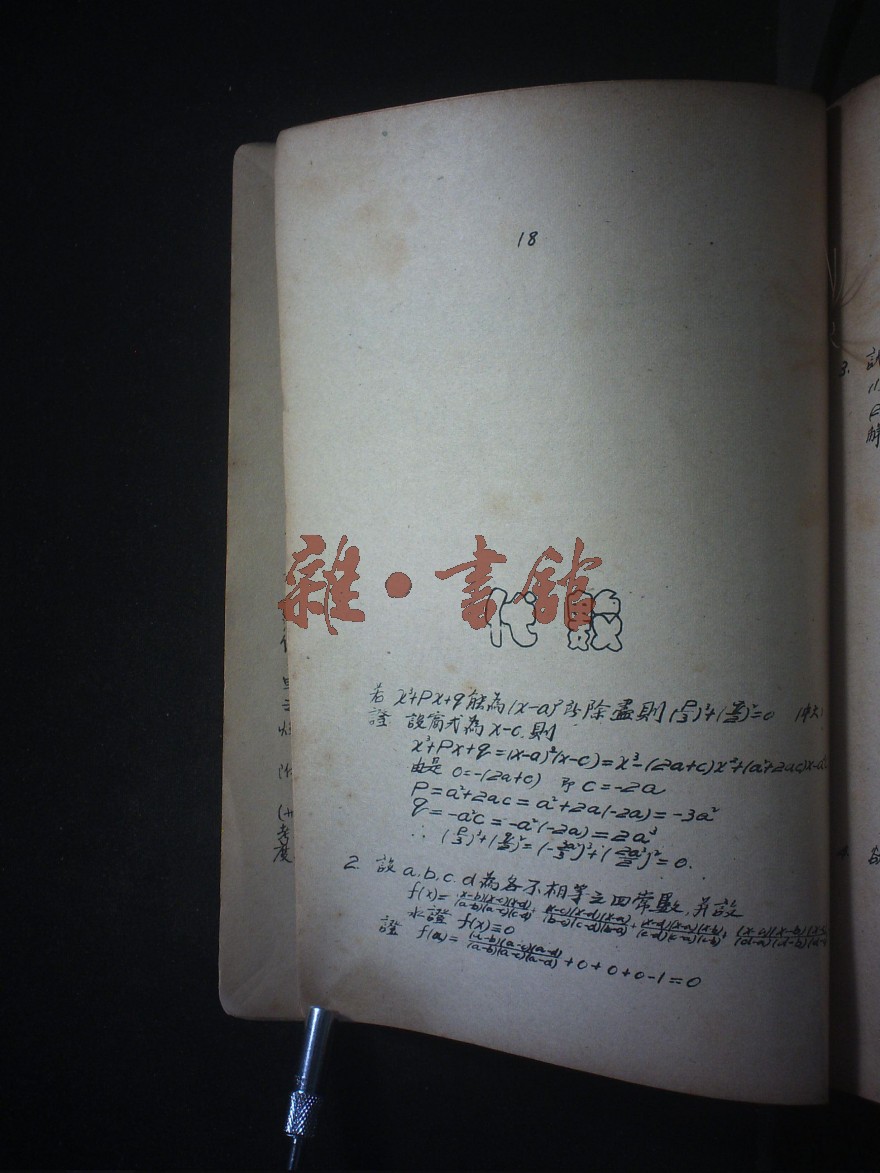 18
雜·書館
代數
若 x³+Px+q能為(x-a)²所除盡則(P/3)³+(q/2)²=0
證 設商式為x-c.則
x³+Px+q=(x-a)²(x-c)=x³-(2a+c)x²+(a²+2ac)x-a
由是 0=-(2a+c) 即 c=-2a
P=a²+2ac=a²+2a(-2a)=-3a²
q=-a²c=-a²(-2a)=2a³
∴ (P/3)³+(q/2)²=(-3a²/3)³+(2a³/2)²=0.
2. 設a.b.c.d為各不相等之四常數,并設
f(x)=(x-b)(x-c)(x-d)/(a-b)(a-c)(a-d)+(x-c)(x-d)(x-a)/(b-c)(c-d)(b-a)+(x-d)(x-a)(x-b)/(c-d)(c-a)(c-b)+(x-a)(x-b)(x/(d-a)(d-b)(d-
求證 f(x)=0
證 f(a)=(a-b)(a-c)(a-d)/(a-b)(a-c)(a-d)+0+0+0-1=0
3.